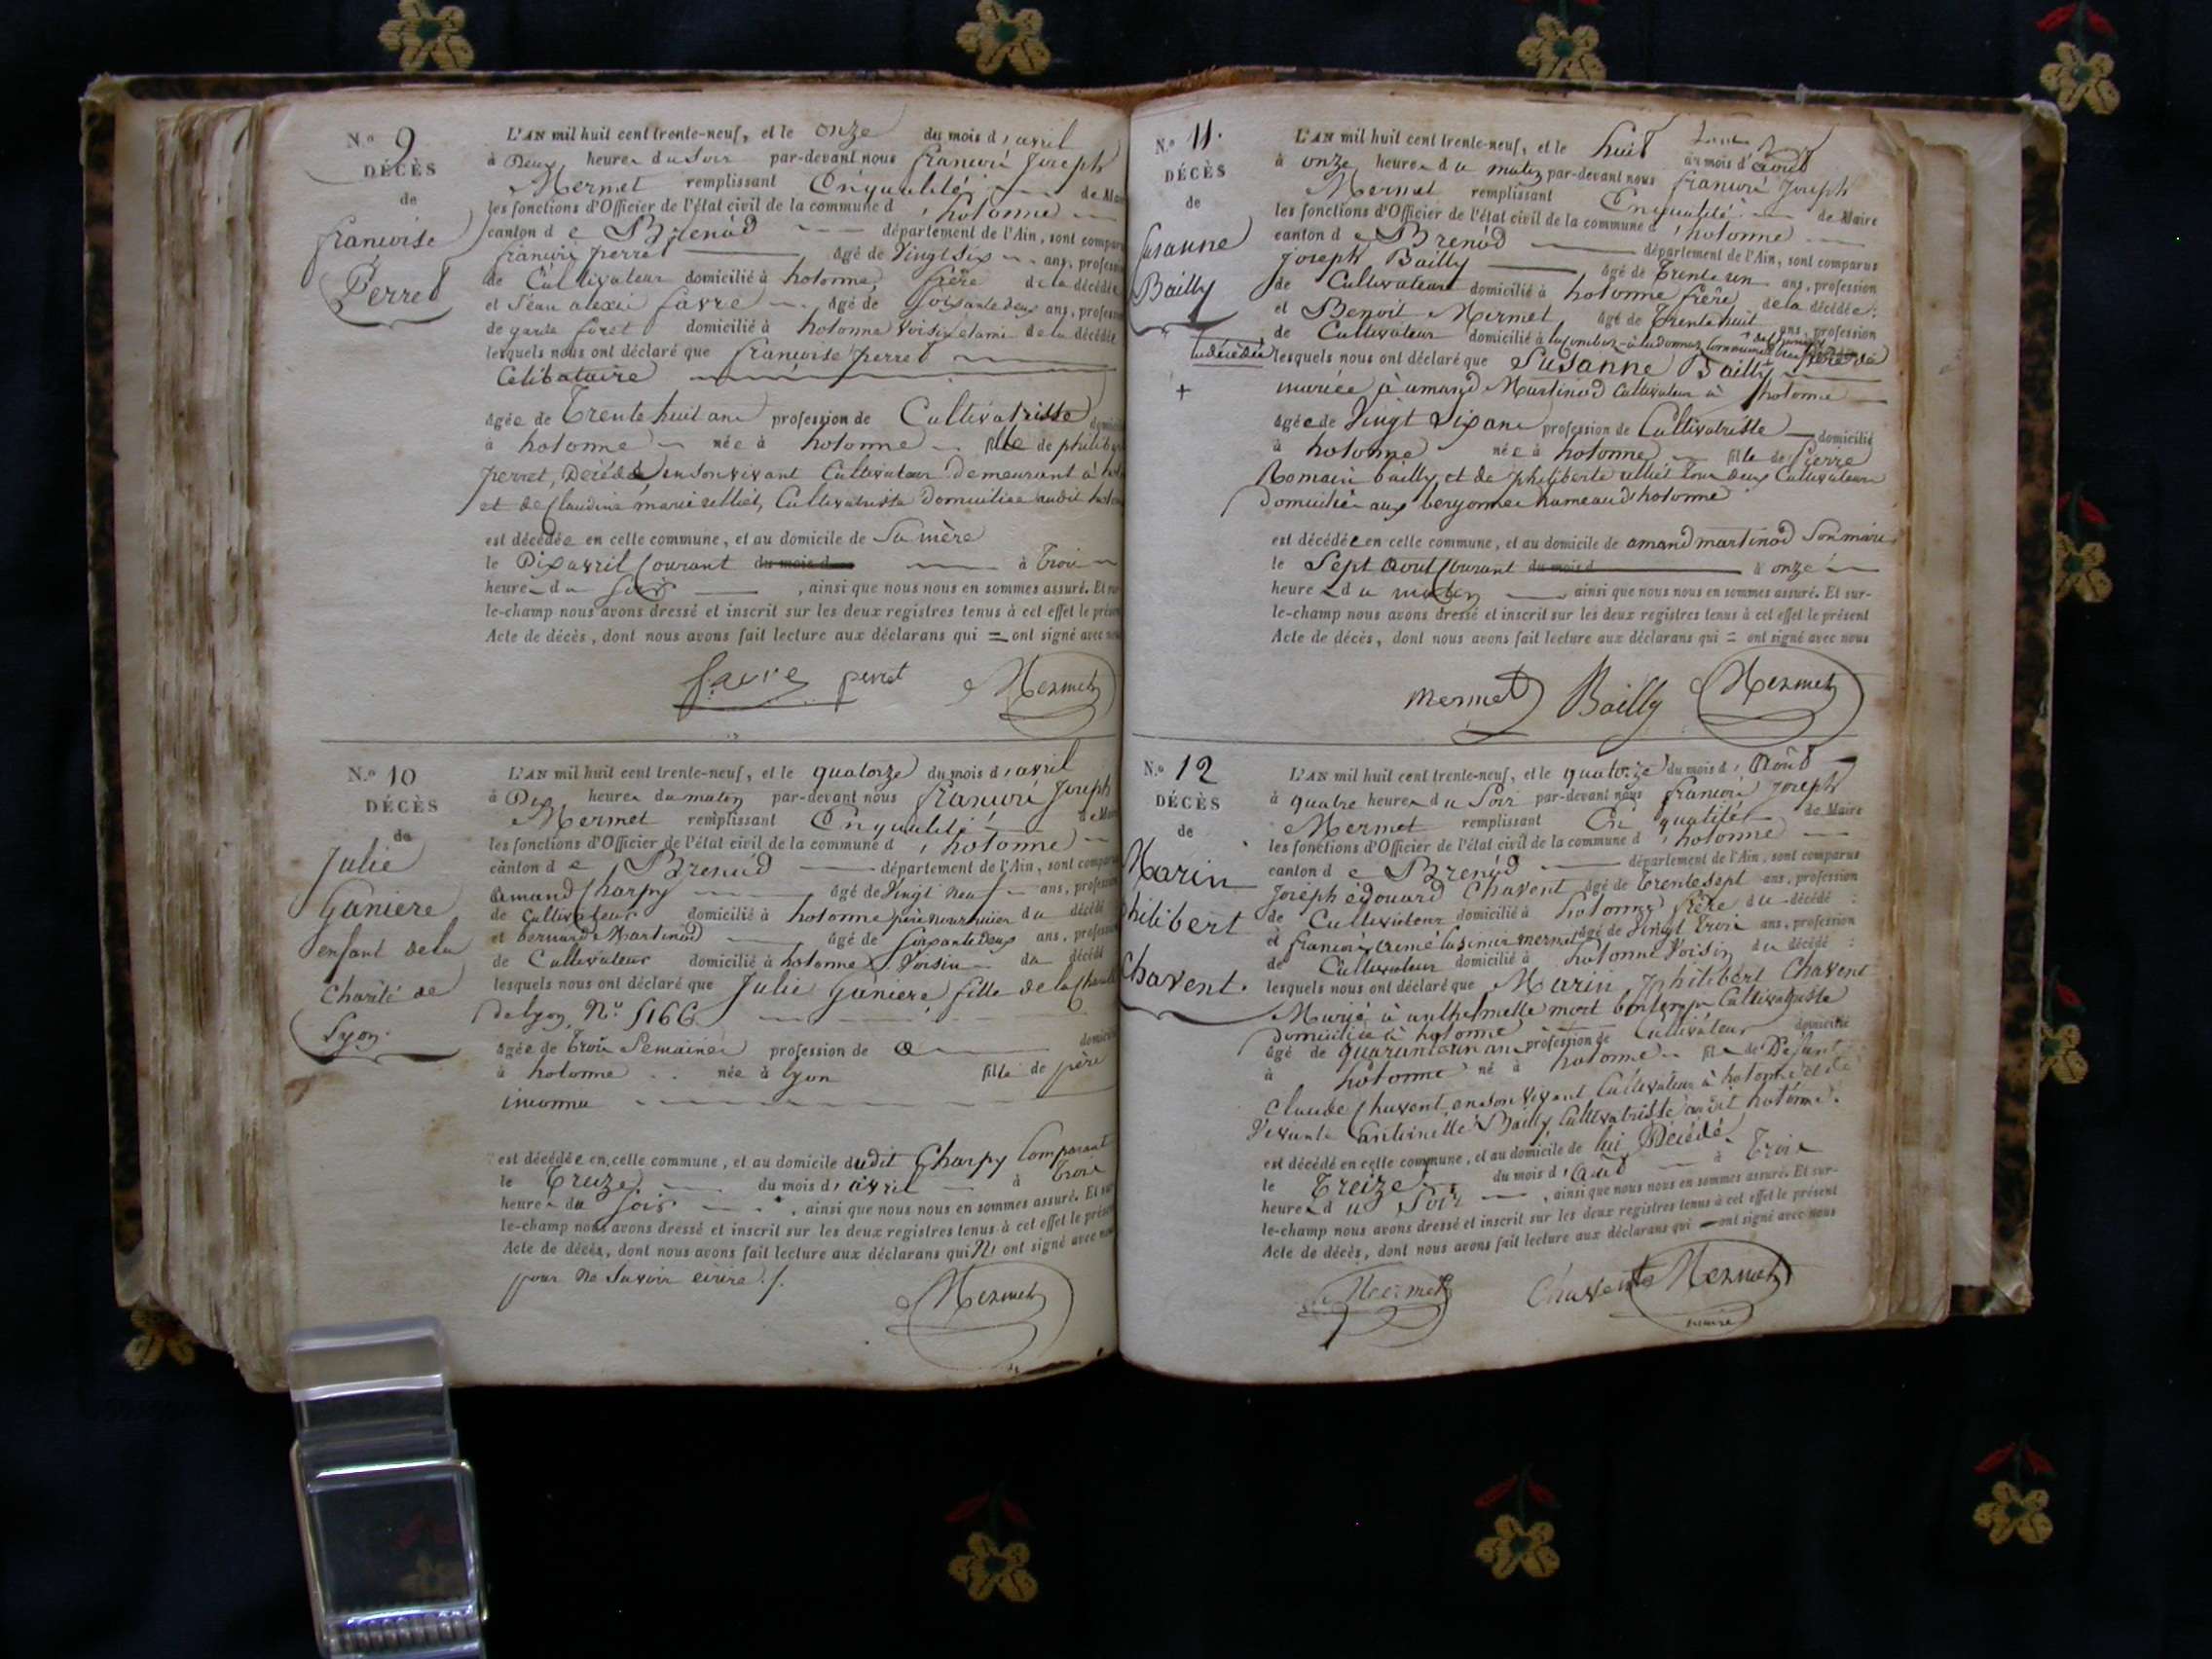 N.º 9
DÉCÈS
de
françoise
Perret
L'AN mil huit cent trente-neuf, et le onze du mois d'avril
à Deux heures du Soir par-devant nous françois Joseph
Mermet remplissant En qualité de Mai
les fonctions d'Officier de l'état civil de la commune d'hotonne
canton de Brenod département de l'Ain, sont compar
françois perret âgé de Vingt Six ans, profess
de Cultivateur domicilié à hotonne, frère de la décédée
et Jean alexis favre âgé de Soixante deux ans, profess
de garde foret domicilié à hotonne Voisin et ami de la décédée
lesquels nous ont déclaré que françoise perret
Celibataire
âgée de Trente huit ans profession de Cultivatrisse domici
à hotonne née à hotonne fille de philib
perret, Décédé, en son vivant Cultivateur Demeurant à
et de Claudine marie Cultivatrisse Domiciliée audit hoton
est décédée en cette commune, et au domicile de Sa mère
le Dix avril Courant du mois d à Trois
heures du Soir, ainsi que nous nous en sommes assuré. Et sur
le-champ nous avons dressé et inscrit sur les deux registres tenus à cet effet le présen
Acte de décès, dont nous avons fait lecture aux déclarans qui = ont signé avec nou
favre perret Mermet
N.º 10
DÉCÈS
de
Julie
Ganiere
enfant de la
Charité de
Lyon.
L'AN mil huit cent trente-neuf, et le quatorze du mois d'avril
à Dix heures du matin par-devant nous françois Joseph
Mermet remplissant En qualité de Mai
les fonctions d'Officier de l'état civil de la commune d'hotonne
canton de Brenod département de l'Ain, sont compar
amand Charpy âgé de Vingt neuf ans, profession
de Cultivateur domicilié à hotonne père nourricier du décédé
et bernard Martinod âgé de Soixante deux ans, profession
de Cultivateur domicilié à hotonne Voisin du décédé
lesquels nous ont déclaré que Julie Ganiere fille de la Charité
De lyon, Nº 5166
âgée de trois Semaines profession de domici
à hotonne née à lyon fille de père
inconnu
est décédée en cette commune, et au domicile dudit Charpy Comparant
le Treize du mois d'avril à Trois
heures du Soir, ainsi que nous nous en sommes assuré. Et sur
le-champ nous avons dressé et inscrit sur les deux registres tenus à cet effet le présen
Acte de décès, dont nous avons fait lecture aux déclarans qui N' ont signé avec nou
pour ne Savoir ecrire./.
Mermet
N.º 11.
DÉCÈS
de
Susanne
Bailly
la décédée
+
L'AN mil huit cent trente-neuf, et le huit du mois d'Août
à onze heures du matin par-devant nous françois Joseph
Mermet remplissant En qualité de Maire
les fonctions d'Officier de l'état civil de la commune d'hotonne
canton de Brenod département de l'Ain, sont comparus
Joseph Bailly âgé de Trente un ans, profession
de Cultivateur domicilié à hotonne frère de la décédée;
et Benoit Mermet âgé de Trente huit ans, profession
de Cultivateur domicilié à
lesquels nous ont déclaré que Susanne Bailly
mariée à amand Martinod Cultivateur à hotonne
âgée de Vingt Six ans profession de Cultivatrisse domicilié
à hotonne née à hotonne fille de Pierre
Romain bailly, et de philiberte tous deux Cultivateurs
Domiciliés aux bergonnes hameau d'hotonne
est décédée en cette commune, et au domicile de amand martinod Son mari
le Sept Aout Courant du mois d à onze
heures du matin, ainsi que nous nous en sommes assuré. Et sur-
le-champ nous avons dressé et inscrit sur les deux registres tenus à cet effet le présent
Acte de décès, dont nous avons fait lecture aux déclarans qui = ont signé avec nous
Mermet Bailly Mermet
N.º 12
DÉCÈS
de
Marin
Philibert
Chavent.
L'AN mil huit cent trente-neuf, et le quatorze du mois d'Août
à quatre heures du Soir par-devant nous françois Joseph
Mermet remplissant En qualité de Maire
les fonctions d'Officier de l'état civil de la commune d'hotonne
canton de Brenod département de l'Ain, sont comparus
Joseph édouard Chavent âgé de Trente sept ans, profession
de Cultivateur domicilié à hotonne frère du décédé :
et françois Casimir mermet âgé de Vingt Trois ans, profession
de Cultivateur domicilié à hotonne Voisin du décédé :
lesquels nous ont déclaré que Marin philibert Chavent
Marié à anthelmette mort bontemps Cultivatrisse
Domiciliée à hotonne
âgé de quarante un ans profession de Cultivateur domicilié
à hotonne né à hotonne fils de Défunt
Claude Chavent, en son vivant Cultivateur à hotonne et de
Vivante Antoinette Bailly Cultivatrisse audit hotonne.
est décédé en cette commune, et au domicile de lui Décédé.
le Treize du mois d'Août à Trois
heures du Soir, ainsi que nous nous en sommes assuré. Et sur-
le-champ nous avons dressé et inscrit sur les deux registres tenus à cet effet le présent
Acte de décès, dont nous avons fait lecture aux déclarans qui ont signé avec nous
Mermet Chavent Mermet
maire